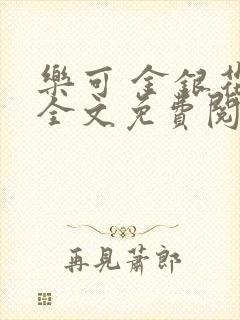 樂可 金銀花
全文免費閱
再見蕭郎